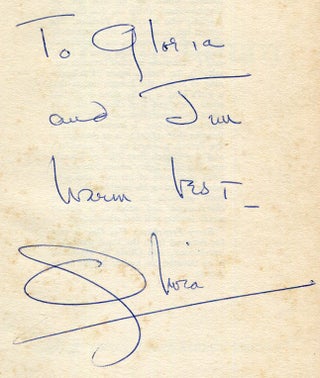 To Gloria
and Jim
Warm best_